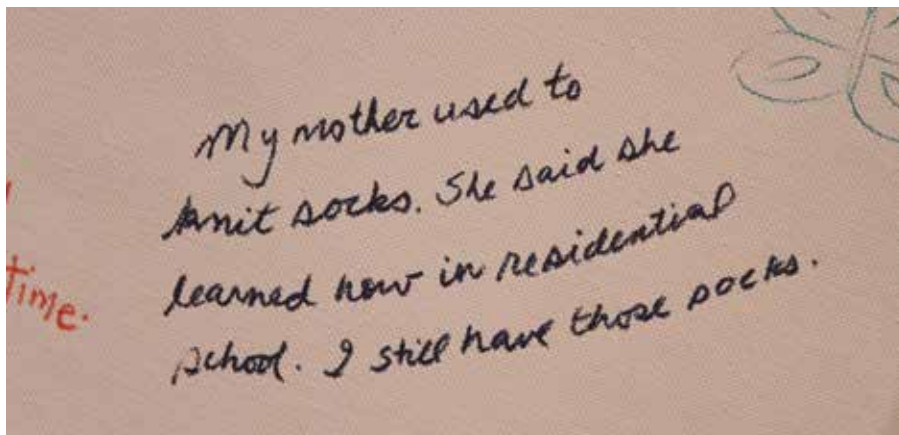 My mother used to
knit socks. She said she
learned how in residential
school. I still have those socks.
time.